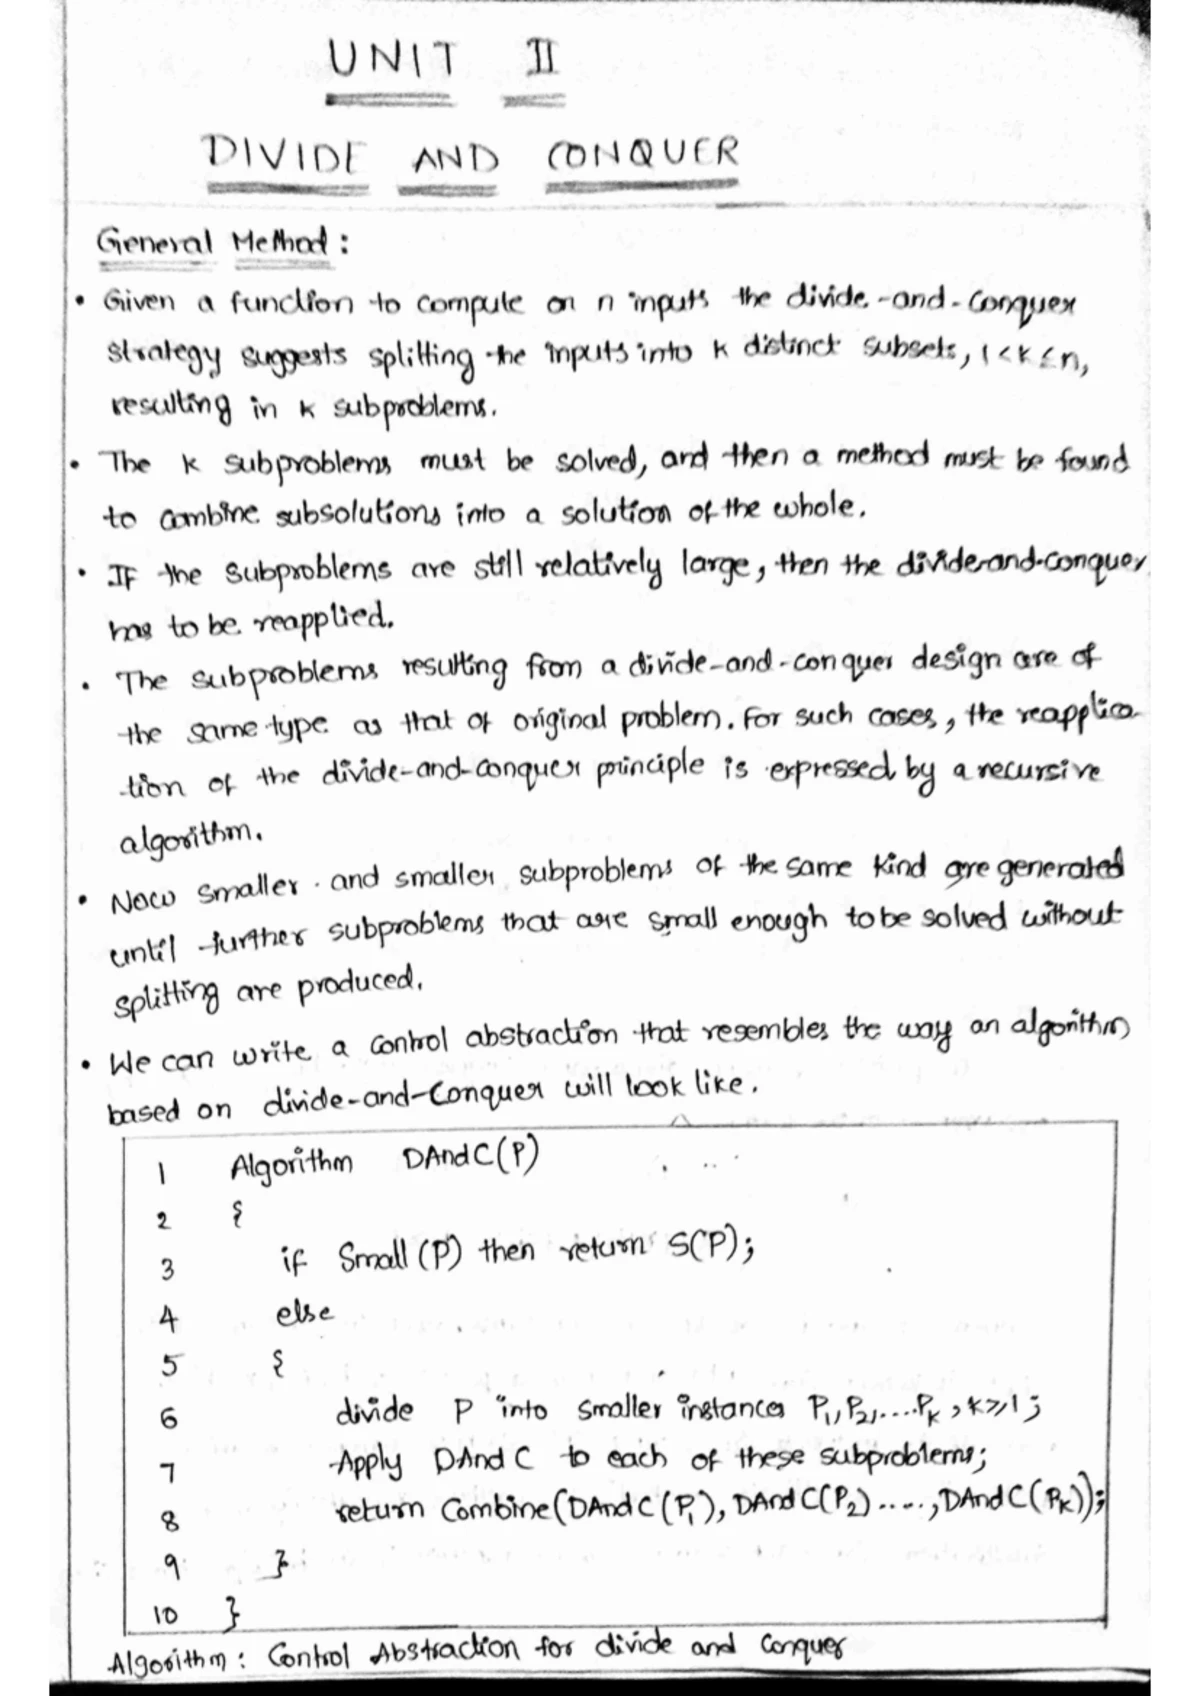 UNIT II
DIVIDE AND CONQUER
General Method :
• Given a function to compute on n inputs the divide-and-conquer
strategy suggests splitting the inputs into k distinct subsets, 1<k≤n,
resulting in k subproblems.
• The k subproblems must be solved, and then a method must be found
to combine subsolutions into a solution of the whole.
• If the subproblems are still relatively large, then the divide-and-conquer
has to be reapplied.
• The subproblems resulting from a divide-and-conquer design are of
the same type as that of original problem. For such cases, the reapplica-
tion of the divide-and-conquer principle is expressed by a recursive
algorithm.
• Now smaller and smaller subproblems of the same kind are generated
until further subproblems that are small enough to be solved without
splitting are produced.
• We can write a control abstraction that resembles the way an algorithm
based on divide-and-Conquer will look like.
1 Algorithm DAndC(P)
2 {
3 if Small(P) then return S(P);
4 else
5 {
6 divide P into smaller instances P₁,P₂,....Pₖ , k≥1;
7 Apply DAndC to each of these subproblems;
8 return Combine(DAndC(P₁), DAndC(P₂) ....., DAndC(Pₖ));
9 }
10 }
Algorithm : Control Abstraction for divide and conquer